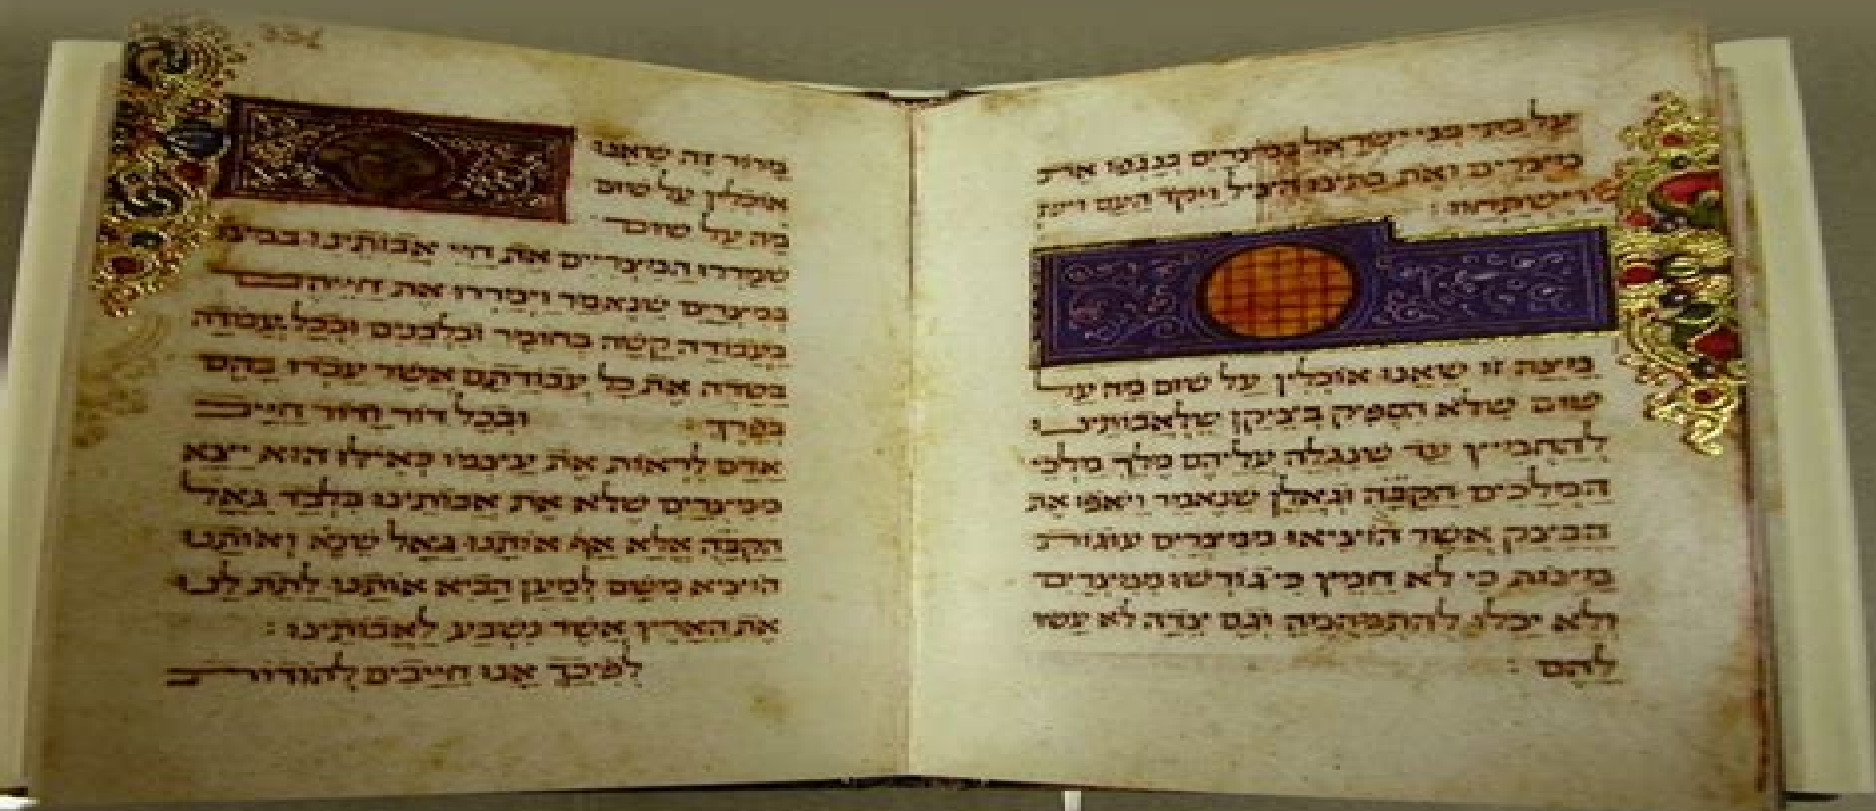 על בתי בני ישראל במצרים בנגפו את
מצרים ואת בתינו הציל ויקד העם
וישתחוו :
מצה זו שאנו אוכלין על שום מה על
שום שלא הספיק בציקן שלאבותינו
להחמיץ עד שנגלה עליהם מלך מלכי
המלכים הקבה וגאלן שנאמר ויאפו את
הבצק אשר הוציאו ממצרים עוגות
מצות כי לא חמץ כי גורשו ממצרים
ולא יכלו להתמהמה וגם צדה לא עשו
להם :
מרור זה שאנו
אוכלין על שום
מה על שום
שמררו המצריים את חיי אבותינו במצ
במצרים שנאמר וימררו את חייהם
בעבודה קשה בחומר ובלבנים ובכל עבודה
בשדה את כל עבודתם אשר עבדו בהם
בפרך : ובכל דור ודור חייב
אדם לראות את עצמו כאילו הוא יצא
ממצרים שלא את אבותינו בלבד גאל
הקבה אלא אף אותנו גאל שנא ואותנו
הוציא משם למען הביא אותנו לתת לנו
את הארץ אשר נשבע לאבותינו :
לפיכך אנו חייבים להודות